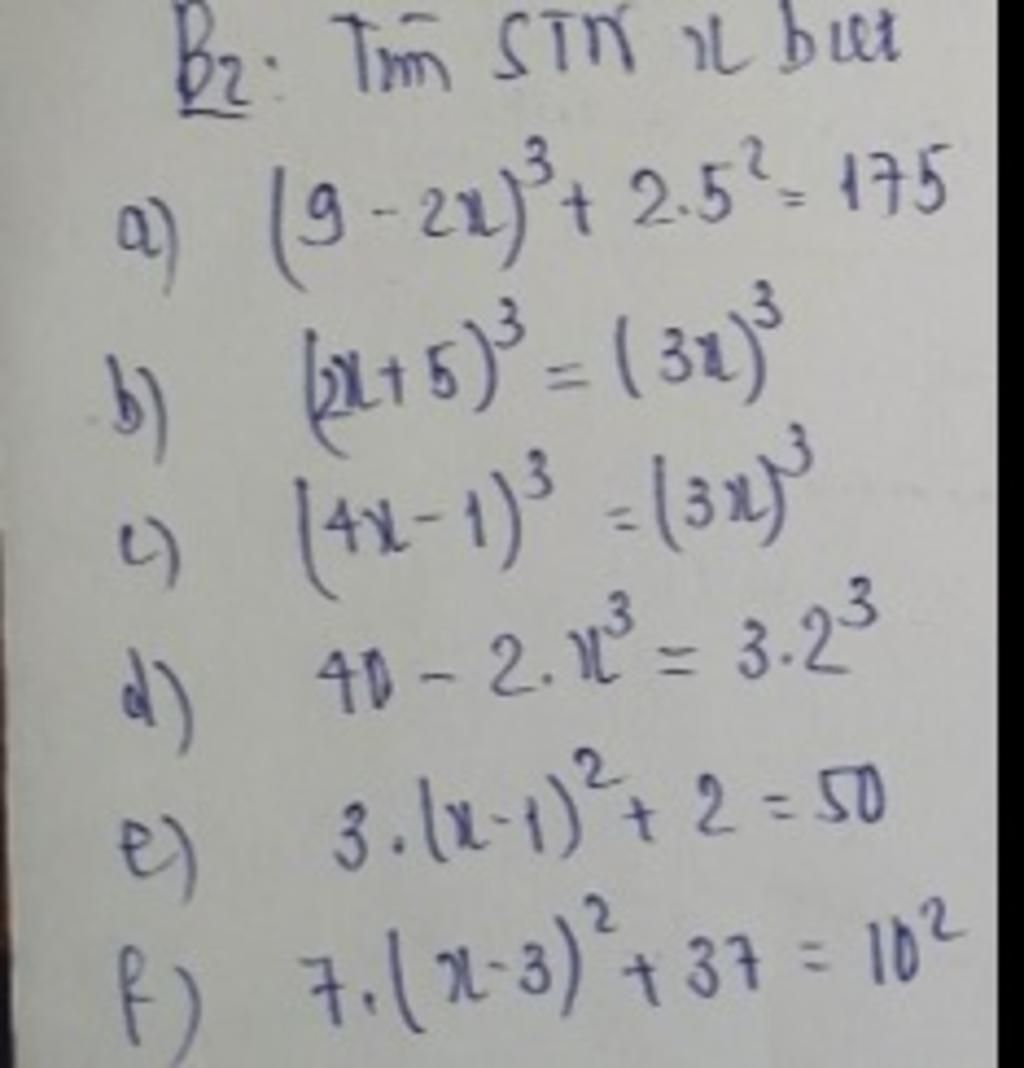 B2: Tìm STN x biết
a) (9 - 2x)³ + 2.5² = 175
b) (2x + 5)³ = (3x)³
c) (4x - 1)³ = (3x)³
d) 40 - 2.x³ = 3.2³
e) 3.(x-1)² + 2 = 50
f) 7.(x-3)² + 37 = 10²